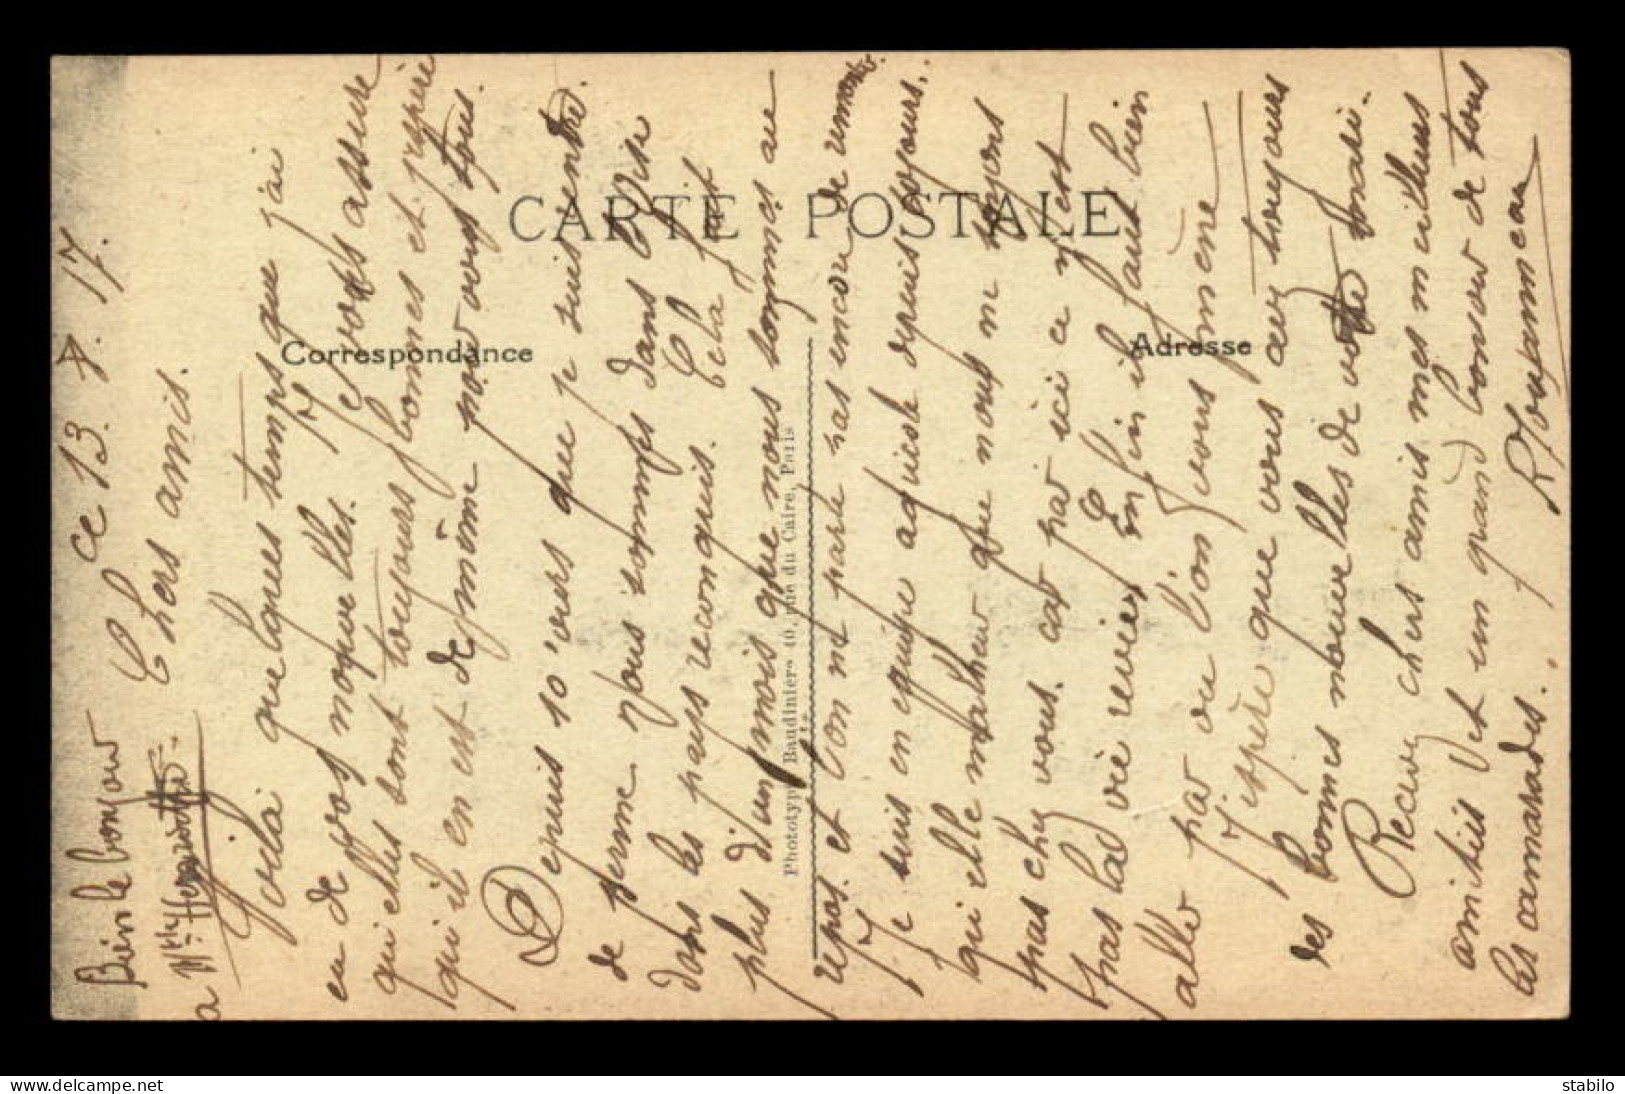 ce 13. 7. 17.
Bien le bonjour
a Mlle Henriette.
Chers amis.
Voila quelques temps que j'ai
eu de vos nouvelles. Je vous assure
qui elles sont toujours bonnes et j'espère
qu'il en est de même pour vous tous.
Depuis 10 jours que je suis rentré
de perme nous sommes dans l'Oise
dans les pays reconquis. Cela fait
plus d'un mois que nous sommes au
repos. et l'on ne parle pas encore de remonter.
Je suis en equipe agricole depuis toujours.
qui elle malheur que nous ne soyons
pas chez vous. car par ici ce n'est
pas la vie revier. Enfin il faut bien
aller par ou l'on vous mène
J'espère que vous avez toujours
des bonnes nouvelles de votre
Recevez chers amis mes meilleurs
amitiés et un grand bonjour de tous
les camarades.
CARTE POSTALE
Correspondance
Adresse
Phototypie Baudinière 40, rue du Caire, Paris
stabilo